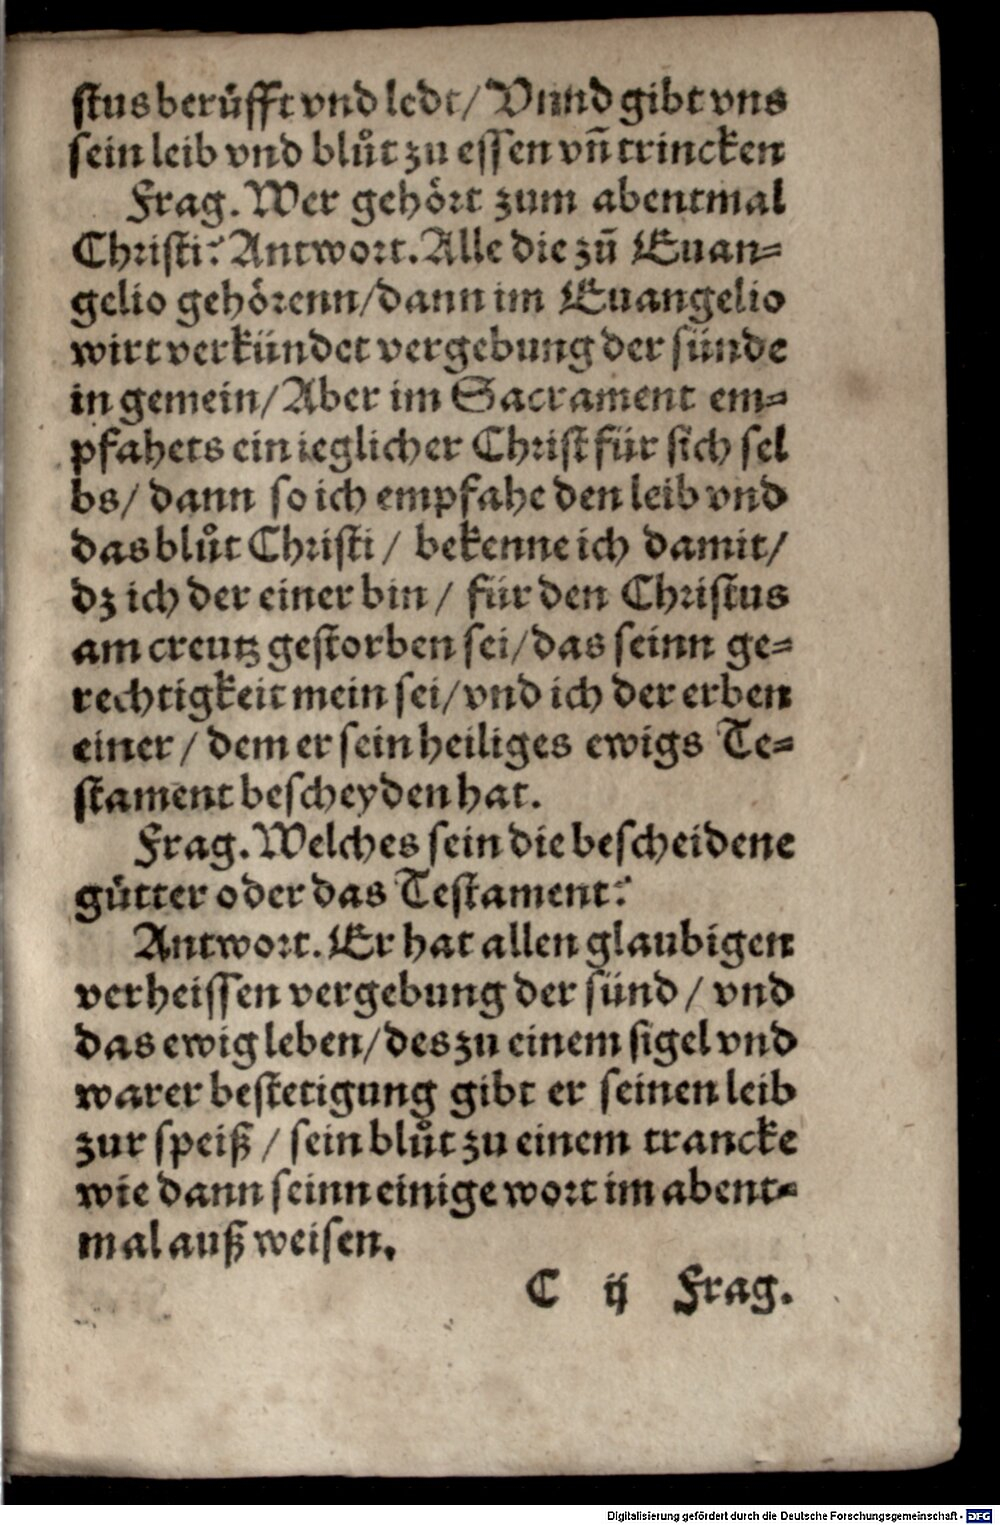 stus berůfft vnd ledt/ Vnnd gibt vns
sein leib vnd blůt zu essen vñ trincken
Frag. Wer gehört zum abentmal
Christi? Antwort. Alle die zũ Euan-
gelio gehörenn/dann im Euangelio
wirt verkündet vergebung der sünde
in gemein/Aber im Sacrament em-
pfahets ein ieglicher Christ für sich sel
bs/ dann so ich empfahe den leib vnd
das blůt Christi/ bekenne ich damit/
dz ich der einer bin/ für den Christus
am creutz gestorben sei/das seinn ge-
rechtigkeit mein sei/vnd ich der erben
einer/ dem er sein heiliges ewigs Te-
stament bescheyden hat.
Frag. Welches sein die bescheidene
gůtter oder das Testament?
Antwort. Er hat allen glaubigen
verheissen vergebung der sünd/ vnd
das ewig leben/des zu einem sigel vnd
warer bestetigung gibt er seinen leib
zur speiß/ sein blůt zu einem trancke
wie dann seinn einige wort im abent-
mal auß weisen.
C ij Frag.
Digitalisierung gefördert durch die Deutsche Forschungsgemeinschaft - DFG